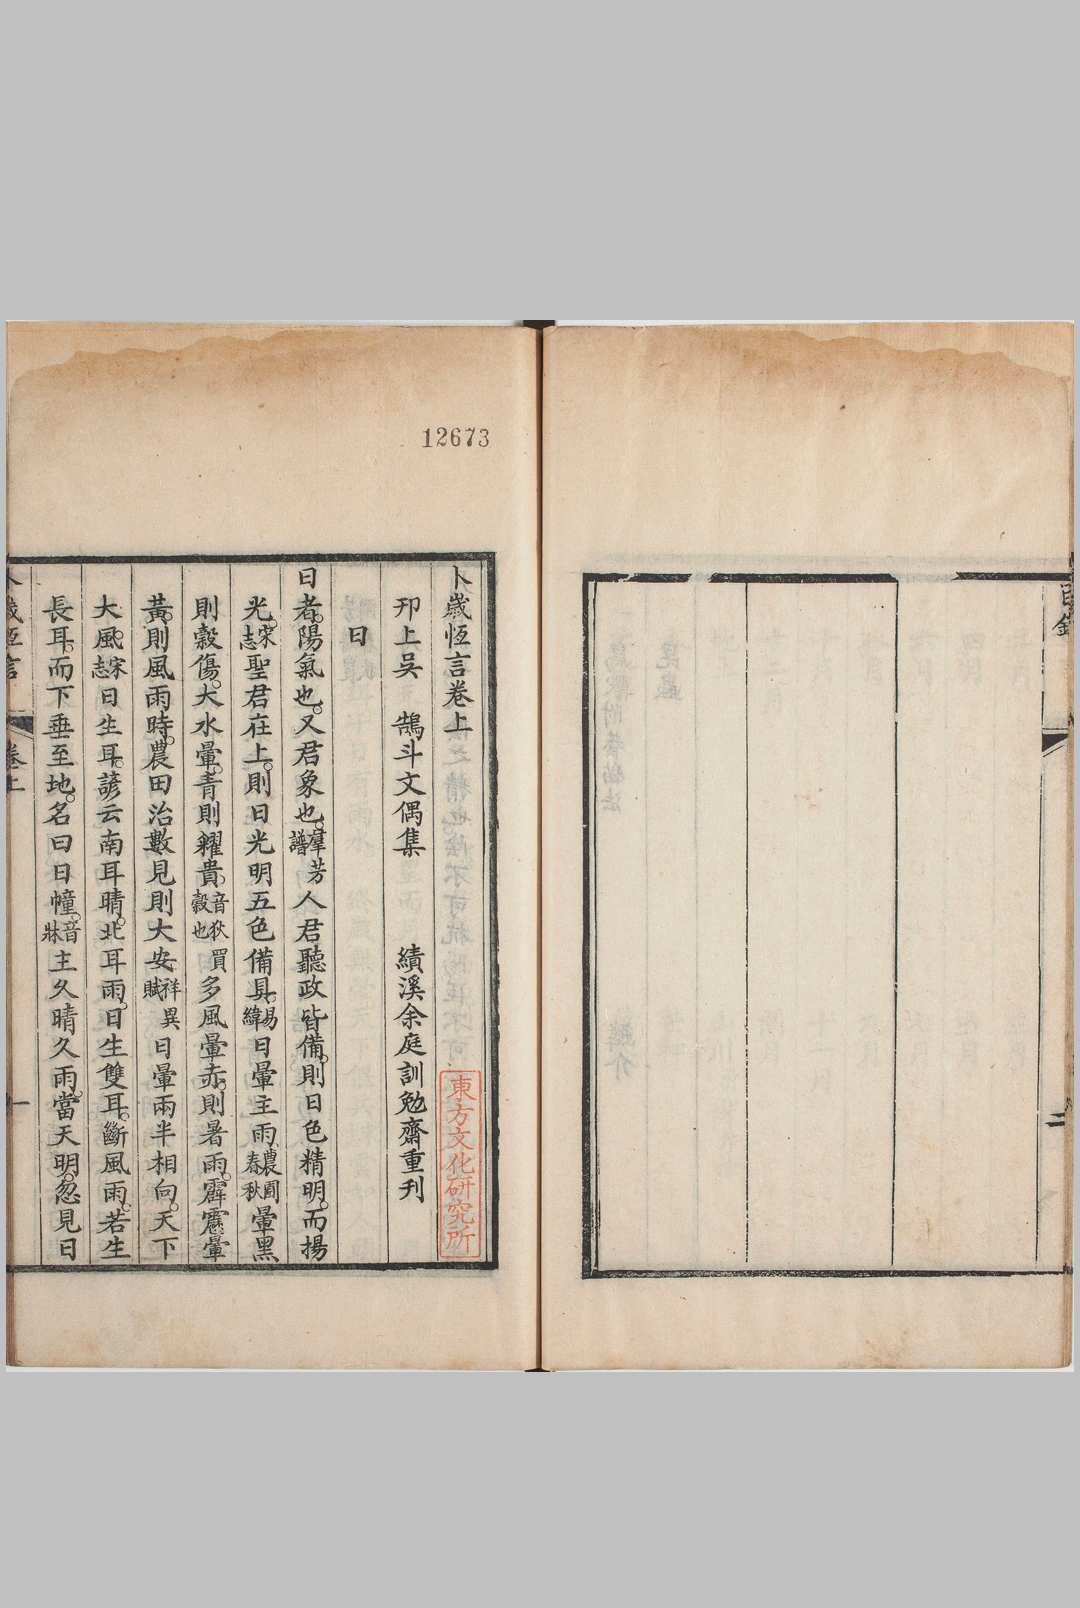 目錄
二
12673
卜歲恆言卷上
東方文化研究所
邗上吳 鵠斗文偶集 績溪余庭訓勉齋重刊
日
日者。陽氣也。又君象也。羣芳譜人君聽政皆備。則日色精明。而揚
光。宋志聖君在上。則日光明五色備具。易緯日暈主雨。農圃春秋暈黑
則穀傷。大水暈。青則糴貴。音狄買穀也多風暈赤。則暑雨。霹靂暈
黃。則風雨時。農田治數見則大安。祥異賦日暈兩半相向。天下
大風。宋志日生耳。諺云南耳晴。北耳雨。日生雙耳。斷風雨。若生
長耳。而下垂至地。名曰日幢。音牀主久晴久雨。當天明。忽見日
卜歲恆言 卷上 一